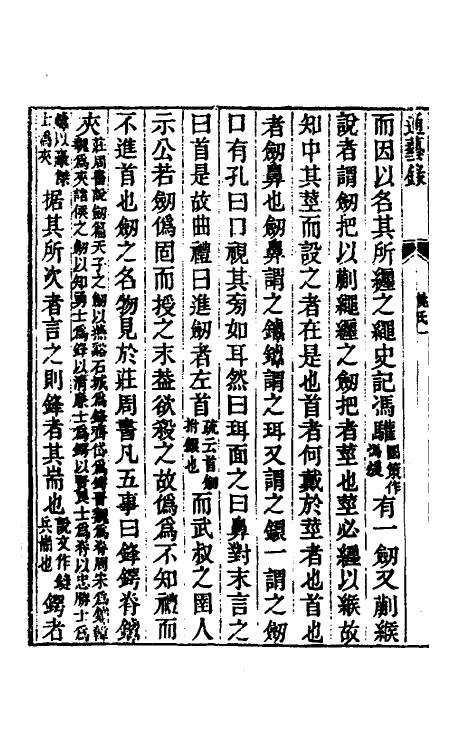 通藝錄
桃氏
而因以名其所纏之繩史記馮驩國策作馮煖有一劒又蒯緱
說者謂劒把以蒯繩纏之劒把者莖也莖必纏以緱故
知中其莖而設之者在是也首者何戴於莖者也首也
者劒鼻也劒鼻謂之鐔鐔謂之珥又謂之鐶一謂之劒
口有孔曰口視其旁如耳然曰珥面之曰鼻對末言之
曰首是故曲禮曰進劒者左首疏云首劒拊鐶也而武叔之圉人
示公若劒僞固而授之末蓋欲殺之故僞爲不知禮而
不進首也劒之名物見於莊周書凡五事曰鋒鍔脊鐔
夾莊周書說劒篇天子之劒以燕谿石城爲鋒齊岱爲鍔晉魏爲脊周宋爲鐔韓魏爲夾諸侯之劒以知勇士爲鋒以淸廉士爲鍔以賢良士爲脊以忠勝士爲
鐔以豪傑士爲夾据其所次者言之則鋒者其耑也說文作鏠兵耑也鍔者